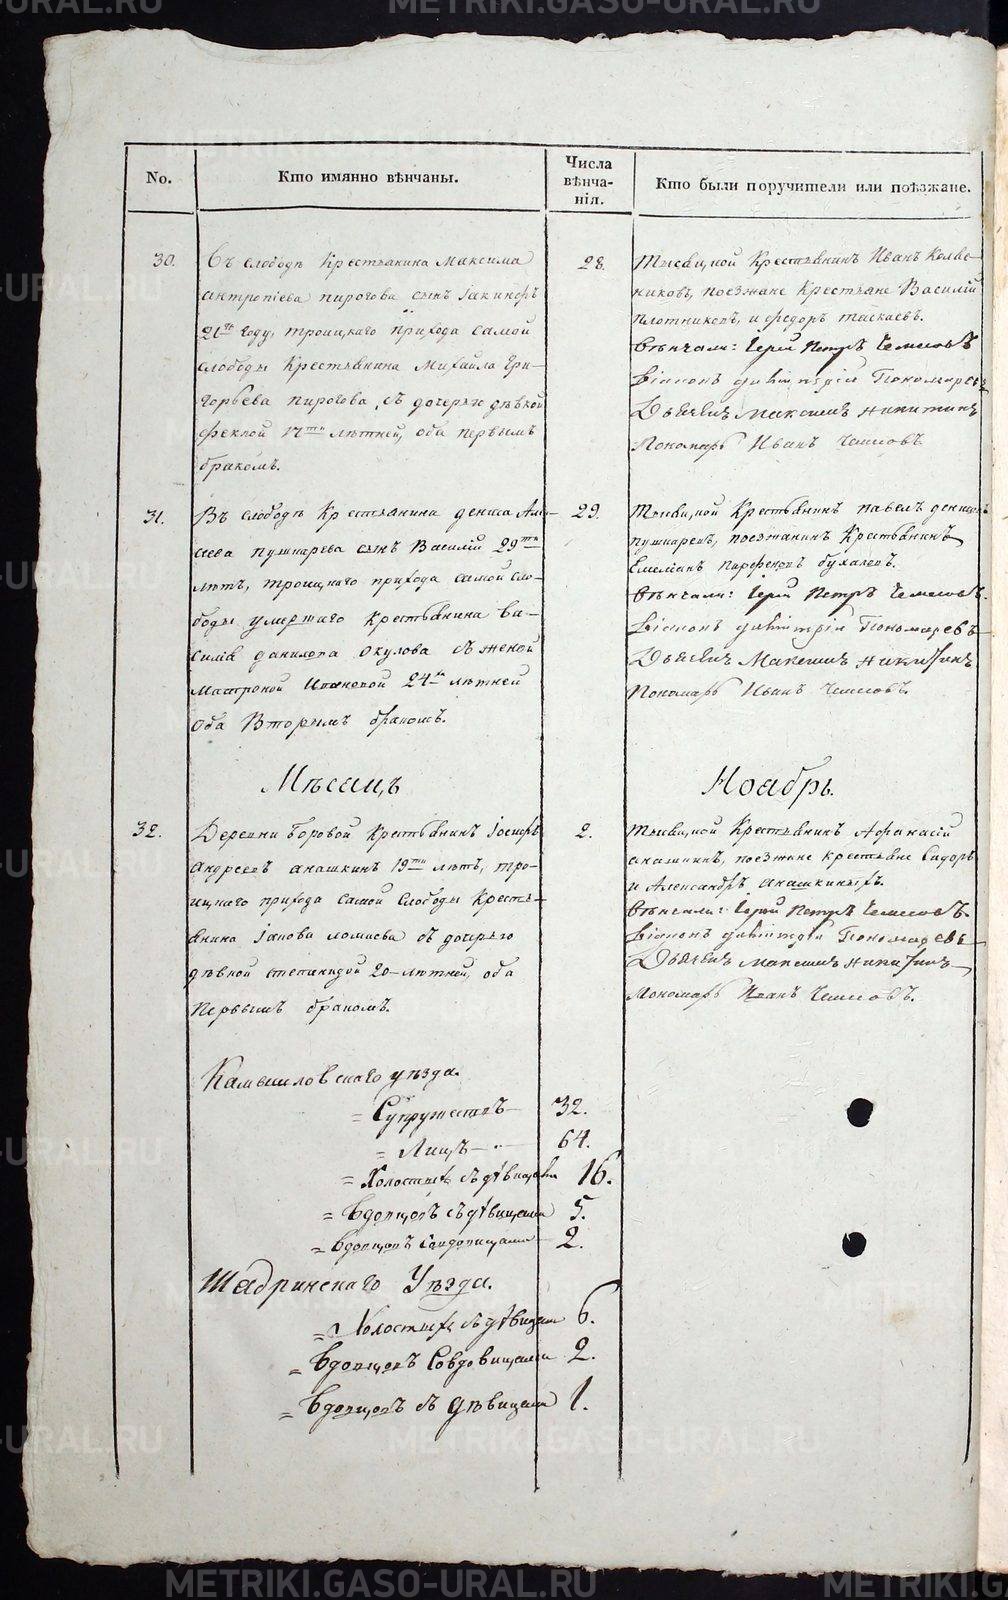 METRIKI.GASO-URAL.RU
No.
Кто имянно вѣнчаны.
Числа
вѣнча-
нія.
Кто были поручители или поѣзжане.
30.
Въ слободѣ Крестьянина Максима
антропіева пирогова сынъ Іакинфъ
21го году, троицкаго прихода самой
слободы Крестьянина Михайла Гри-
горьева пирогова, съ дочерью дѣвкой
феклой 17ти лѣтней, оба первымъ
бракомъ.
28.
Тысяцкой Крестьянинъ Иванъ
поезжане Крестьяне Василій
плотниковъ, и федоръ таскаевъ.
Вѣнчали: Іерей Петръ
Діаконъ Димитрій Пономаревъ
Дьячекъ Максимъ Никитинъ
Пономарь Иванъ
31.
Въ слободѣ Крестьянина дениса
пушкарева сынъ Василій 29ти
лѣтъ, троицкаго прихода самой сло-
боды умершаго Крестьянина ва-
силія данилова окулова съ женой
Матроной Ивановой 24х лѣтней
оба вторымъ бракомъ.
29.
Тысяцкой Крестьянинъ павелъ
пушкаревъ, поезжанинъ Крестьянинъ
Емельянъ парфеновъ бухаровъ.
Вѣнчали: Іерей Петръ
Діаконъ Димитрій Пономаревъ
Дьячекъ Максимъ Никитинъ
Пономарь Иванъ
Мѣсяцъ
Ноябрь.
32.
Деревни Боровой Крестьянинъ Іосифъ
Андреевъ анашкинъ 19ти лѣтъ, тро-
ицкаго прихода самой слободы Кресть-
янина Іакова ломаева съ дочерью
дѣвкой степанидой 20-лѣтней, оба
первымъ бракомъ.
2.
Тысяцкой Крестьянинъ Афанасій
анашкинъ, поезжане крестьяне Сидоръ
и Александръ анашкины.
Вѣнчали: Іерей Петръ
Діаконъ Димитрій Пономаревъ
Дьячекъ Максимъ Никитинъ
Пономарь Иванъ
Камышловскаго уѣзда.
= Супружествъ — 32.
= Лицъ — 64.
= Холостыхъ съ дѣвицами 16.
= Вдовцовъ съ дѣвицами 5.
= Вдовцовъ совдовицами 2.
Шадринскаго Уѣзда.
= Холостыхъ съ дѣвицами 6.
= Вдовцовъ Совдовицами 2.
= Вдовцовъ съ дѣвицами 1.
METRIKI.GASO-URAL.RU